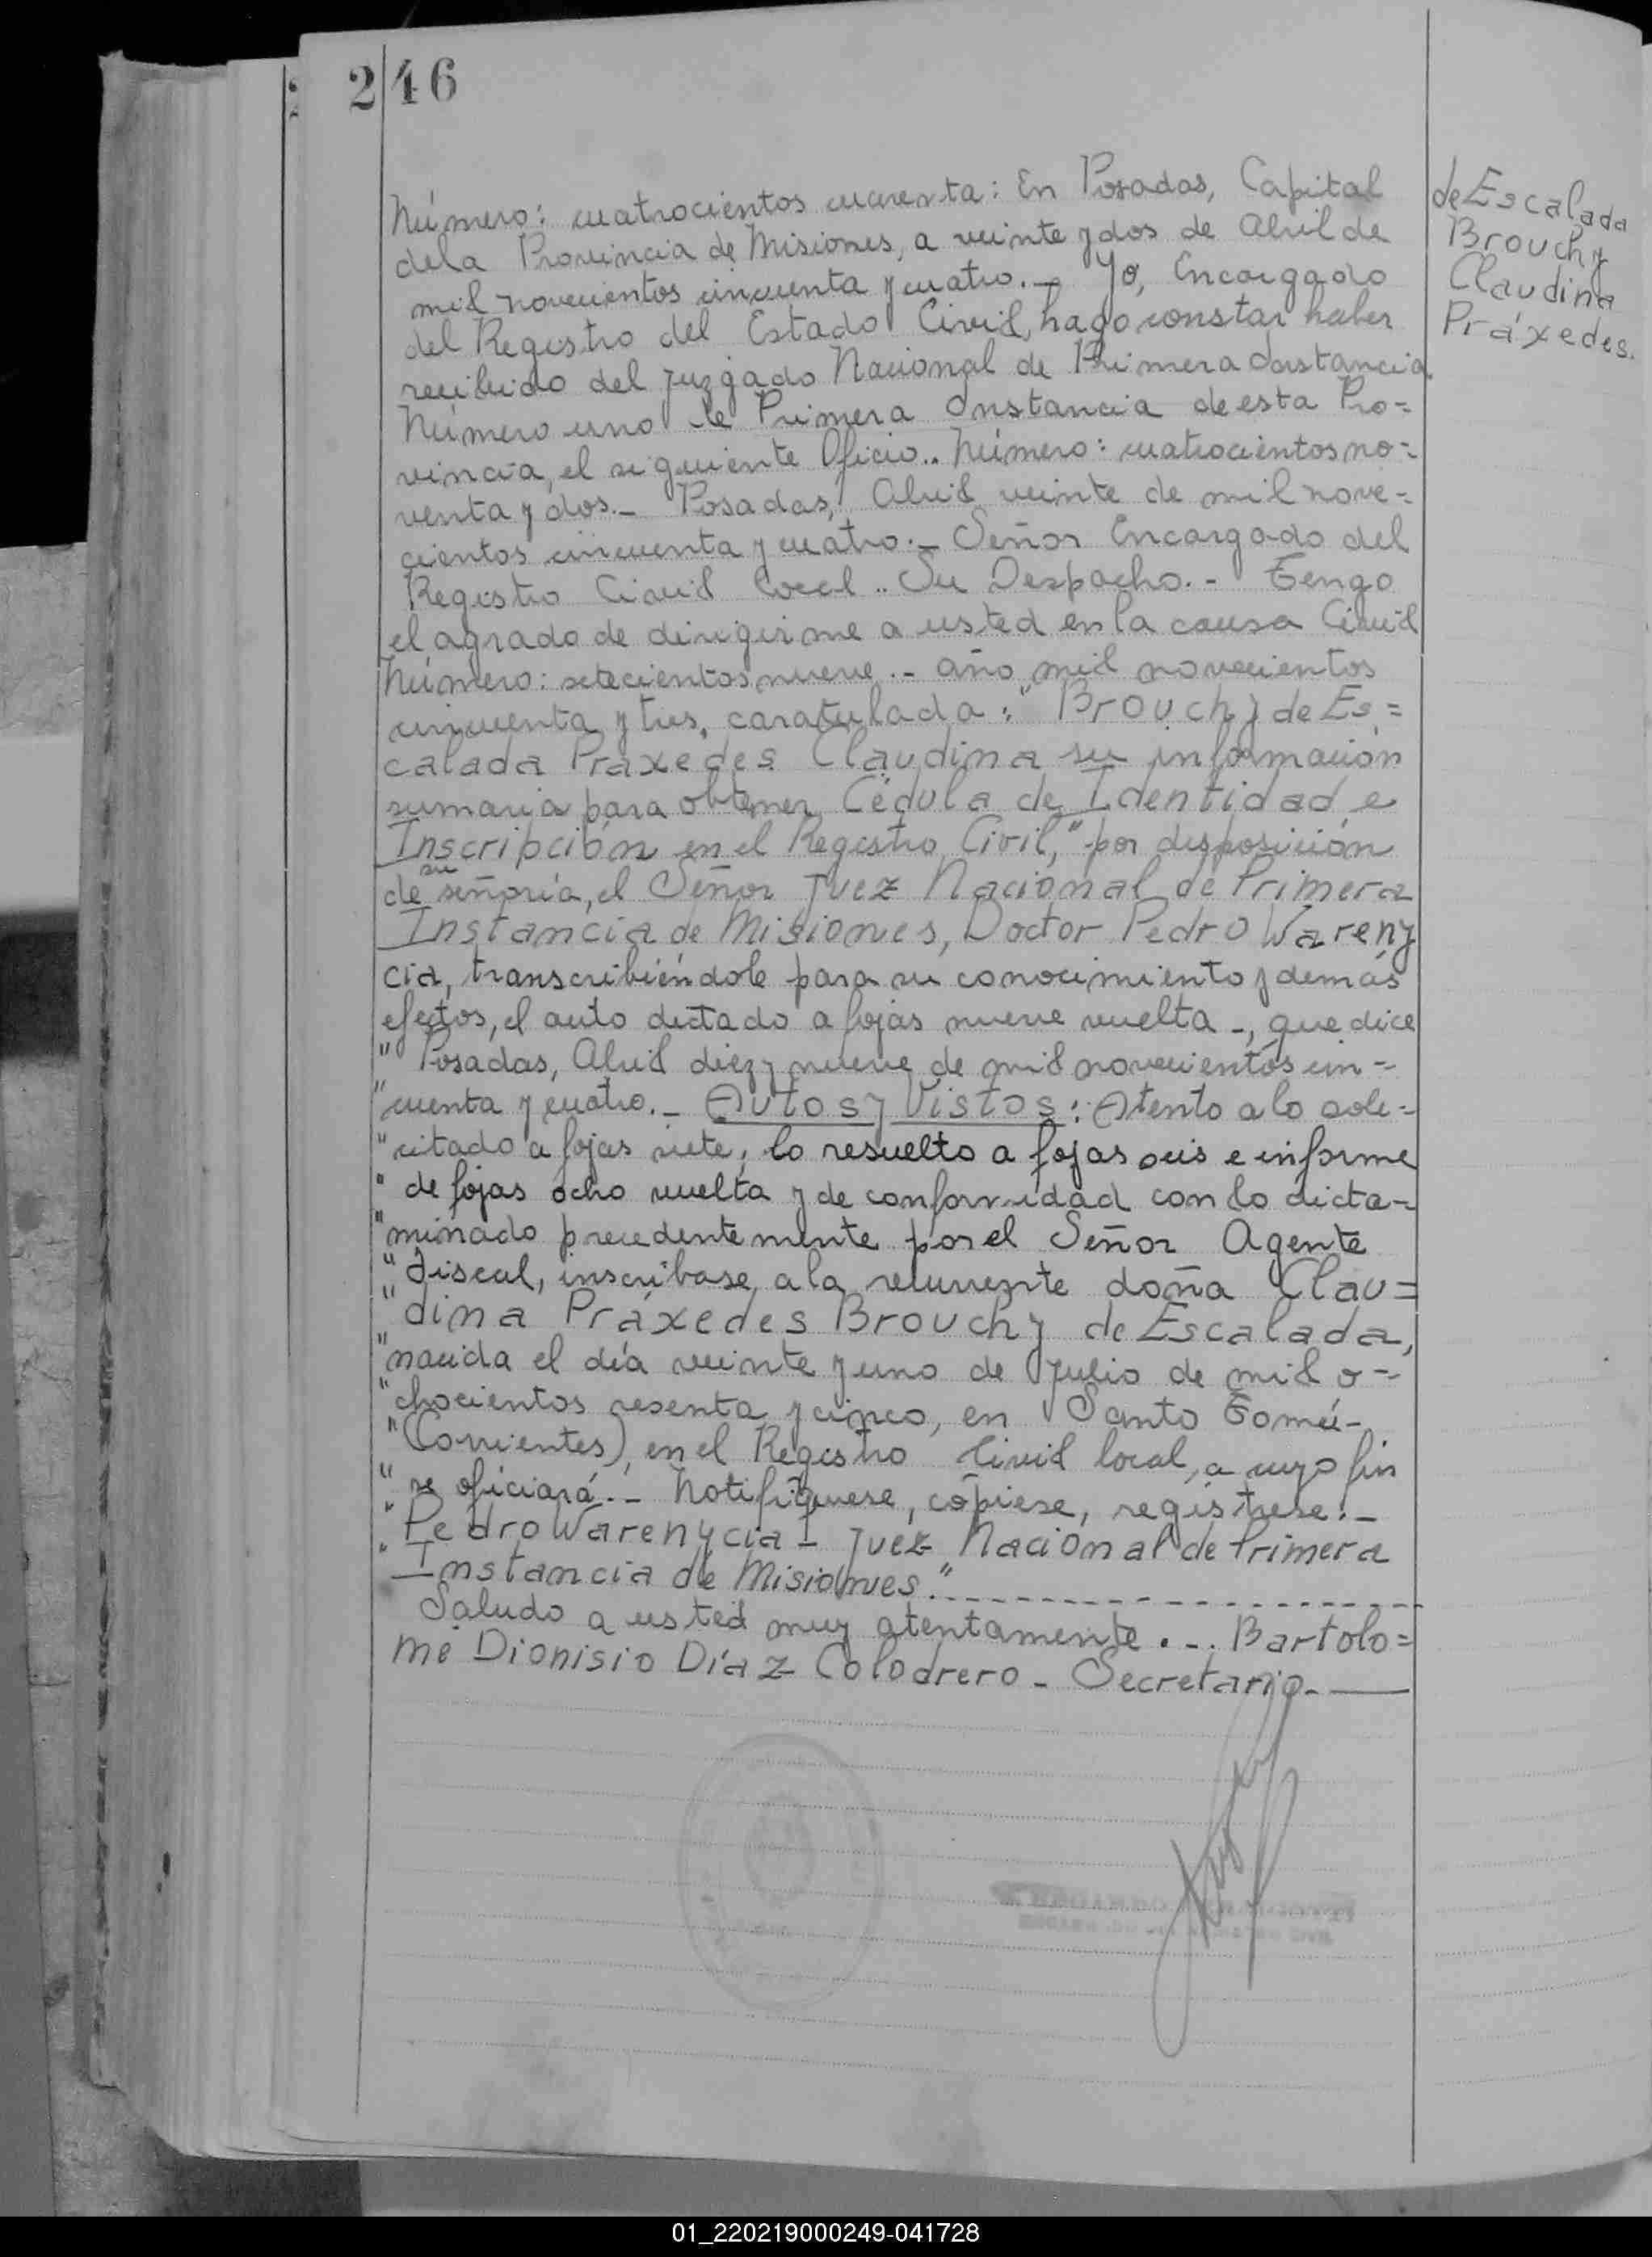 246
Número: cuatrocientos cuarenta: En Posadas, Capital
de la Provincia de Misiones, a veinte y dos de Abril de
mil novecientos cincuenta y cuatro._ Yo, Encargado
del Registro del Estado Civil, hago constar haber
recibido del Juzgado Nacional de Primera Instancia
Número uno de Primera Instancia de esta Pro=
vincia, el siguiente Oficio.. Número: cuatrocientos no=
venta y dos._ Posadas, Abril veinte de mil nove=
cientos cincuenta y cuatro._ Señor Encargado del
Registro Civil Local.. Su Despacho.- Tengo
el agrado de dirigirme a usted en la causa Civil
Número: setecientos nueve.- año mil novecientos
cincuenta y tres, caratulada: "Brouchy de Es=
calada Práxedes Claudina su información
sumaria para obtener Cédula de Identidad e
Inscripción en el Registro Civil," por disposición
de su señoría, el Señor Juez Nacional de Primera
Instancia de Misiones, Doctor Pedro Wareny
cia, transcribiéndole para su conocimiento y demás
efectos, el auto dictado a fojas nueve vuelta -, que dice
" Posadas, Abril diez y nueve de mil novecientos cin-
"cuenta y cuatro._ Autos y Vistos: Atento a lo soli=
"citado a fojas siete, lo resuelto a fojas seis e informe
" de fojas ocho vuelta y de conformidad con lo dicta-
"minado precedentemente por el Señor Agente
"Fiscal, inscríbase a la recurrente doña Clau=
"dina Práxedes Brouchy de Escalada,
"nacida el día veinte y uno de Julio de mil o-
"chocientos sesenta y cinco, en Santo Tomé-
"(Corrientes), en el Registro Civil local, a cuyo fin
" se oficiará._ Notifíquese, cópiese, regístrese._
"Pedro Warenycia - Juez Nacional de Primera
" Instancia de Misiones."
Saludo a usted muy atentamente._. Bartolo=
mé Dionisio Díaz Colodrero - Secretario.
de Escalada
Brouchy
Claudina
Práxedes.
01_220219000249-041728